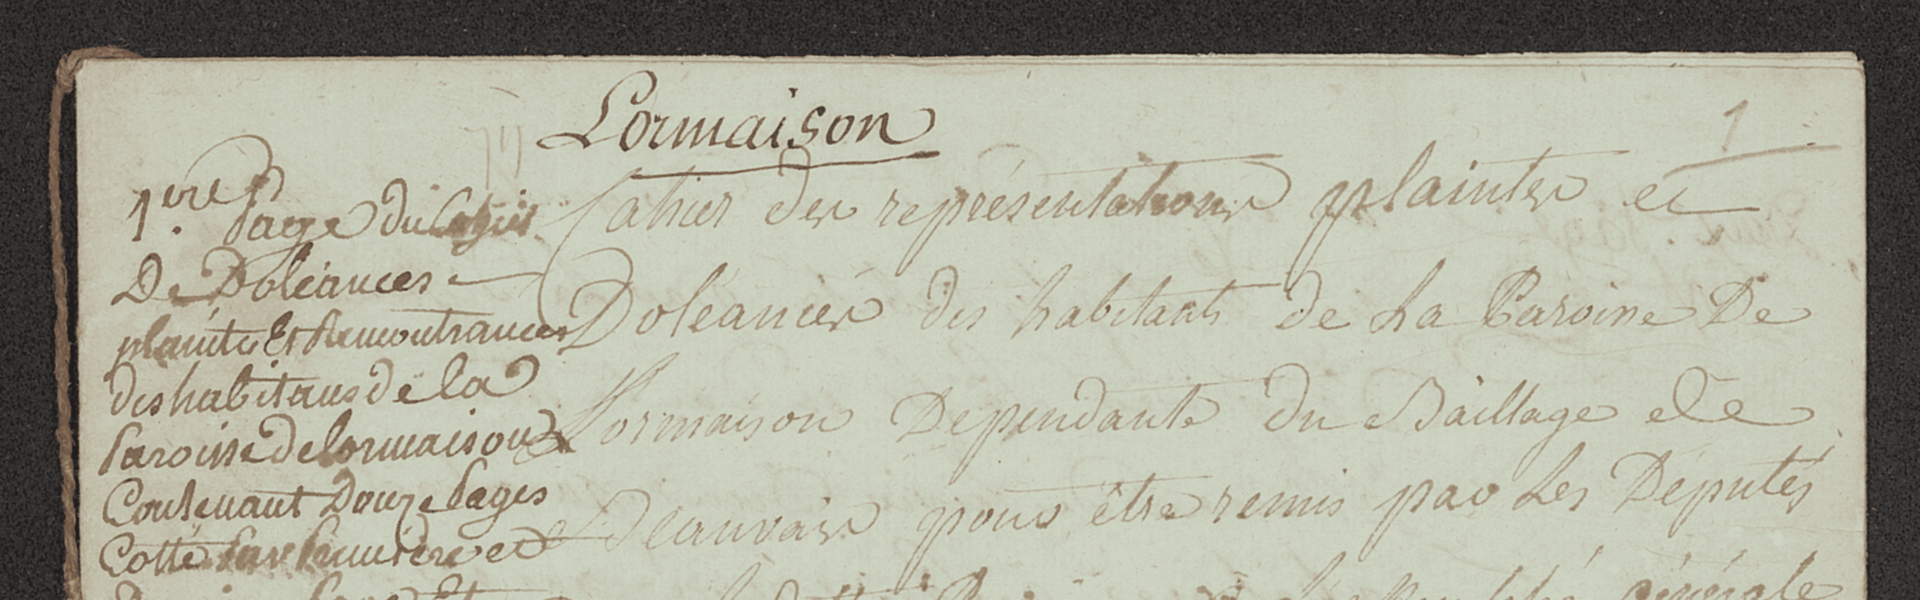 Lormaison
1
1ere page du Cahier
De Doléances
plaintes Et Remontrances
des habitans de la
paroisse de lormaison
Contenant Douze pages
Cotté par premiere et
Cahier des représentations plaintes et
Doléances des habitants de La Paroisse De
Lormaison Dependante du Baillage de
Beauvais pour être remis par Les Députés
générale